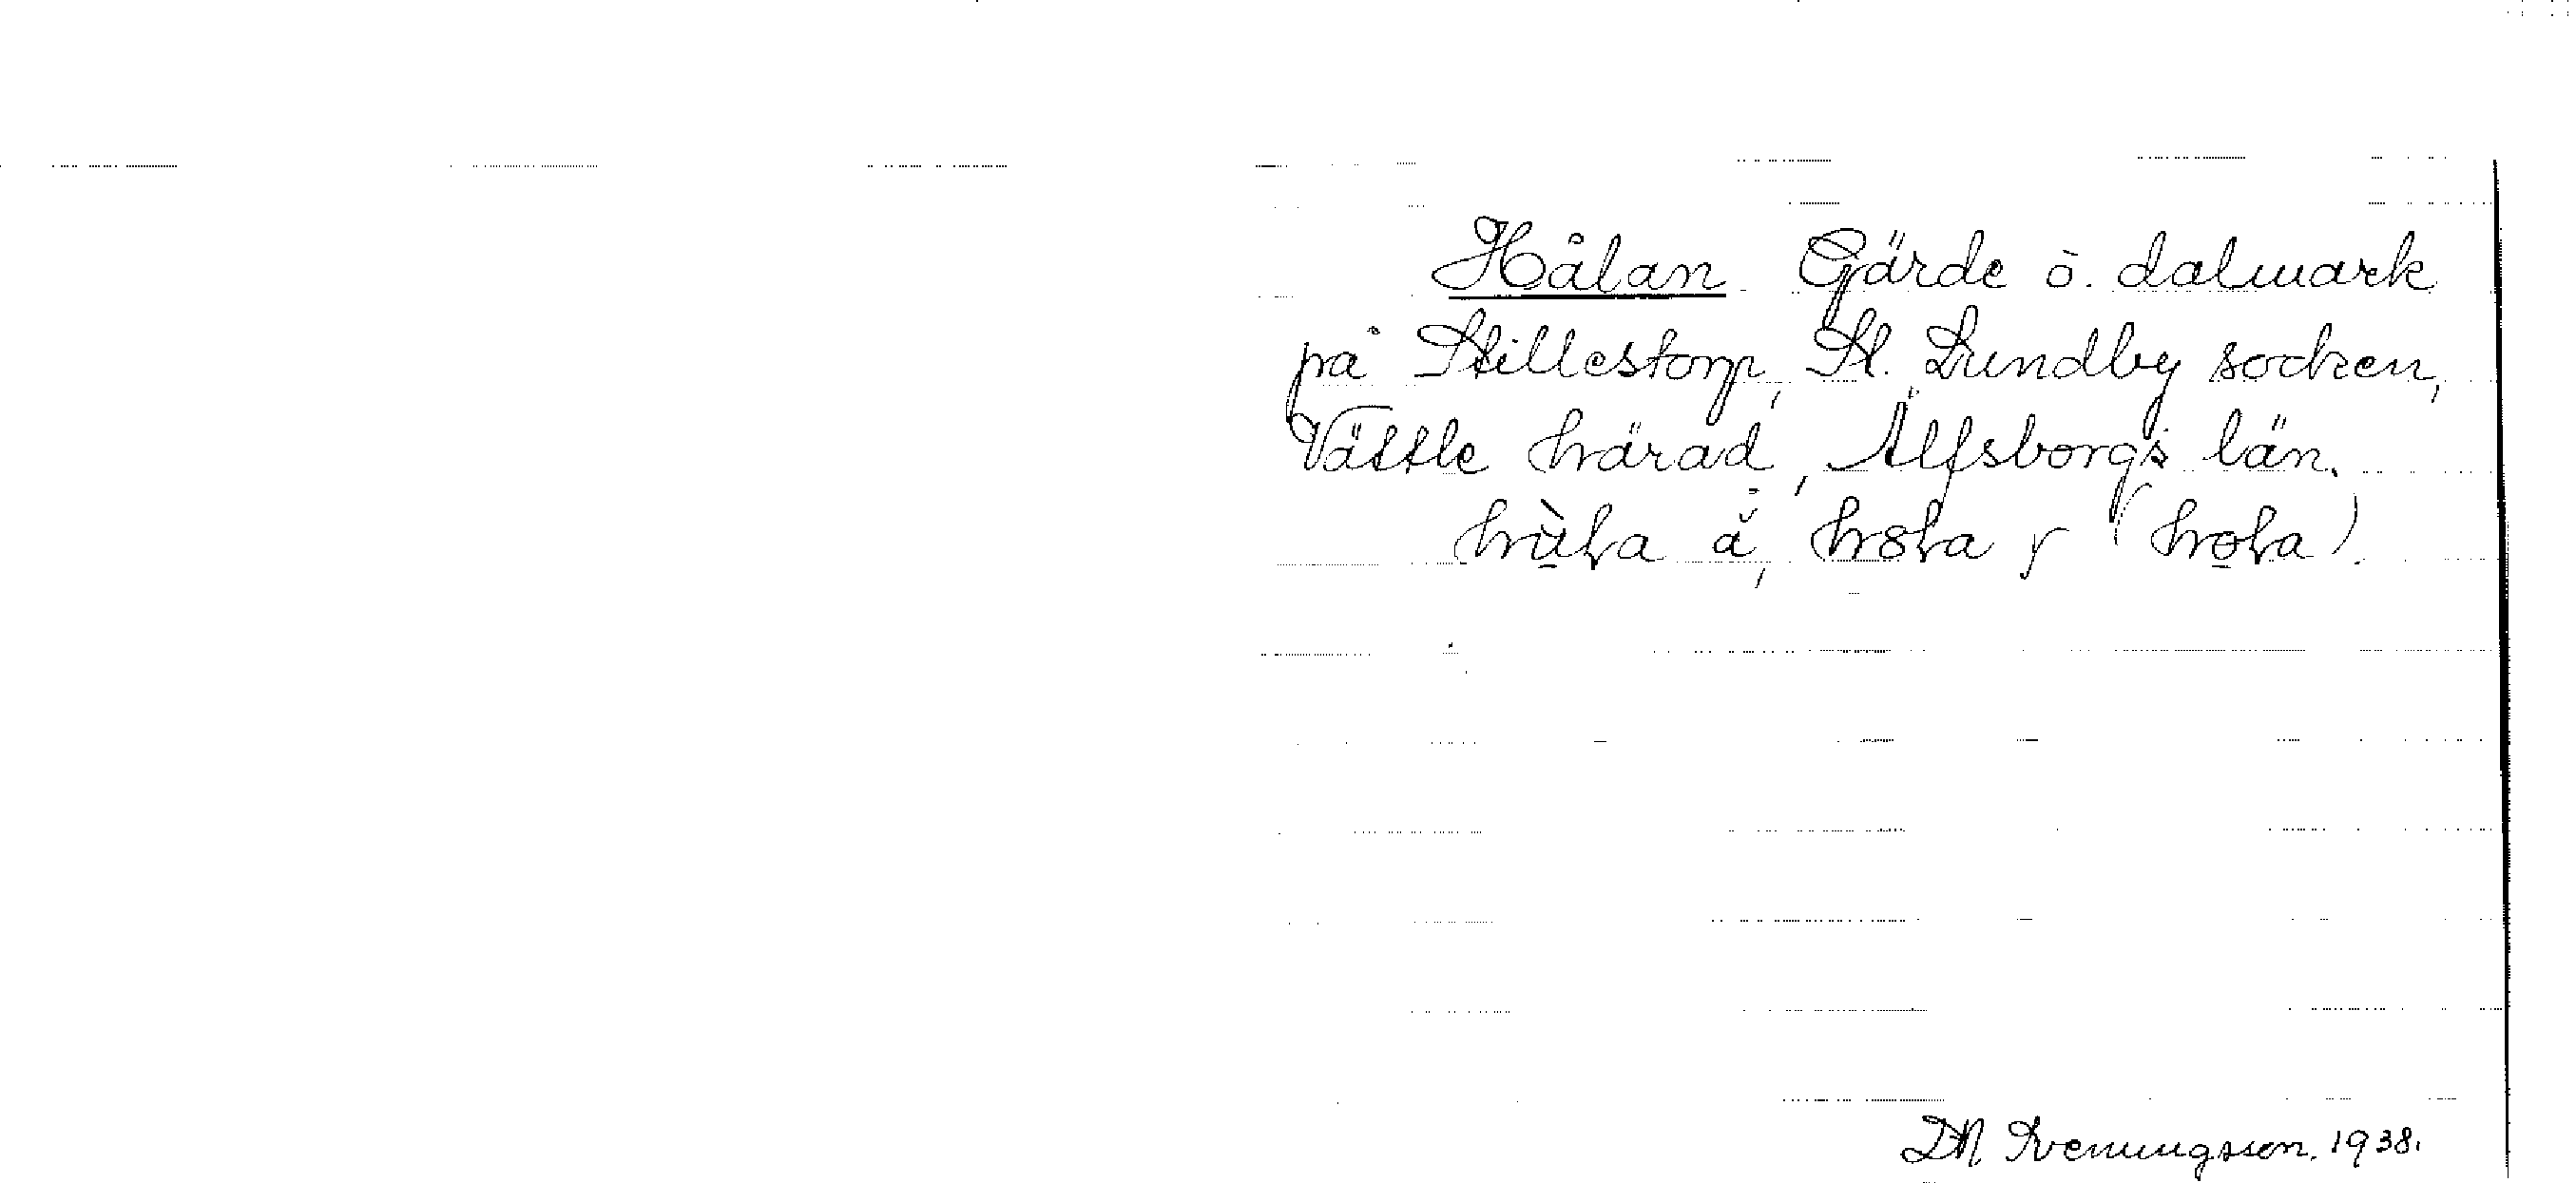 Hålan Gärde ö. dalmark
på Stillestorp, St. Lundby socken,
Vättle härad, Älfsborgs län.
DN Svenungsson. 1938.